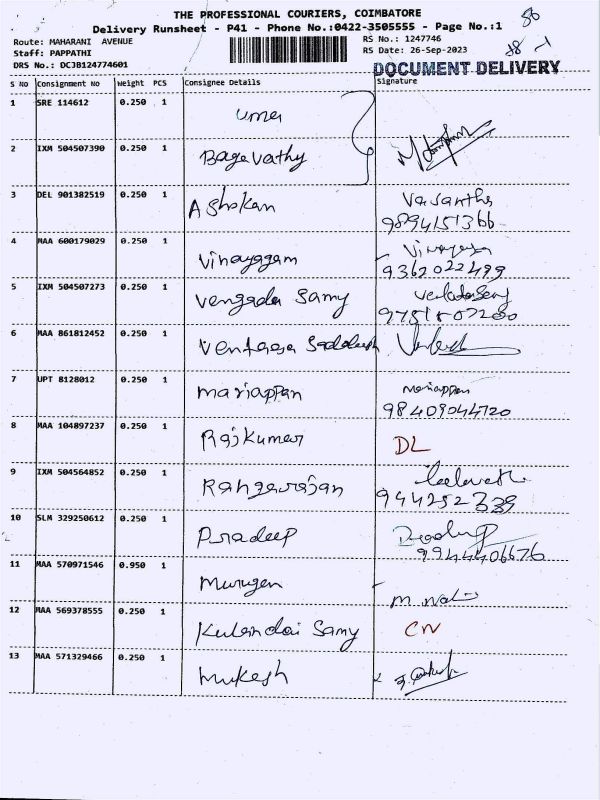 THE PROFESSIONAL COURIERS, COIMBATORE
Delivery Runsheet - P41 - Phone No.:0422-3505555 - Page No.:1
Route: MAHARANI AVENUE
RS No.: 1247746
Staff: PAPPATHI
RS Date: 26-Sep-2023
DRS No.: DCJB124774601
DOCUMENT DELIVERY
S No Consignment No Weight PCS Consignee Details Signature
1 SRE 114612 0.250 1 Uma
2 IXM 504507390 0.250 1 Bagavathy
3 DEL 901382519 0.250 1 Ashokan Vasantha
9894151366
4 MAA 600179029 0.250 1 Vinayagam
9362022499
5 IXM 504507273 0.250 1 Vengada Samy
9751807280
6 MAA 861812452 0.250 1
7 UPT 8128012 0.250 1 Mariappan Mariappan
98409044720
8 MAA 104897237 0.250 1 Rajkumar DL
9 IXM 504564852 0.250 1 Rangarajan
944252339
10 SLM 329250612 0.250 1 Pradeep
9944406676
11 MAA 570971546 0.950 1 Murugen
12 MAA 569378555 0.250 1 Kulandai Samy CN
13 MAA 571329466 0.250 1 Mukesh